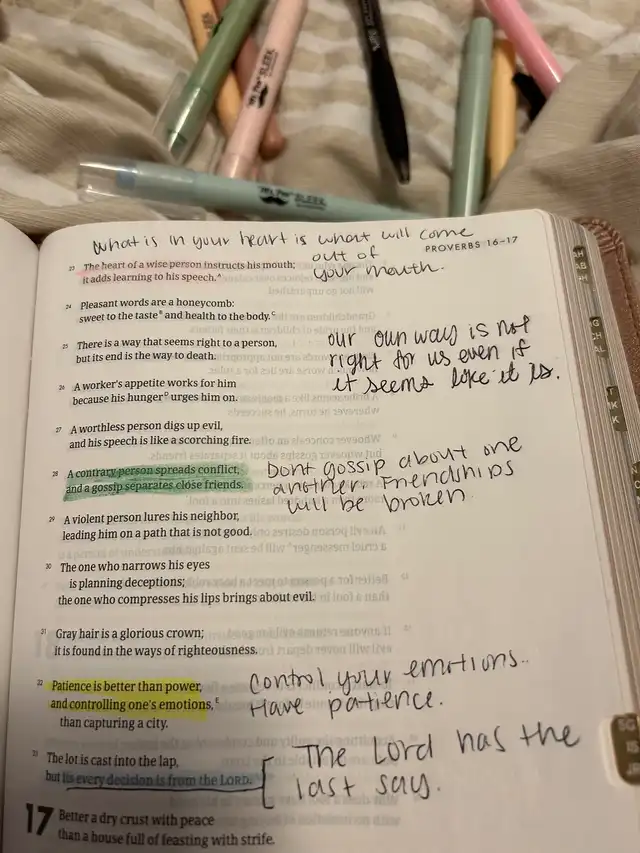 Mr. Pen SLEEK
Mr. Pen SLEEK
Mr. Pen SLEEK
What is in your heart is what will come
out of
your mouth.
PROVERBS 16–17
23 The heart of a wise person instructs his mouth;
it adds learning to his speech.A
24 Pleasant words are a honeycomb:
sweet to the tasteB and health to the body.C
25 There is a way that seems right to a person,
but its end is the way to death.
our own way is not
right for us even if
it seems like it is.
26 A worker's appetite works for him
because his hungerD urges him on.
27 A worthless person digs up evil,
and his speech is like a scorching fire.
28 A contrary person spreads conflict,
and a gossip separates close friends.
Dont gossip about one
another. Friendships
will be broken.
29 A violent person lures his neighbor,
leading him on a path that is not good.
30 The one who narrows his eyes
is planning deceptions;
the one who compresses his lips brings about evil.
31 Gray hair is a glorious crown;
it is found in the ways of righteousness.
32 Patience is better than power,
and controlling one's emotions,E
than capturing a city.
Control your emotions..
Have patience.
33 The lot is cast into the lap,
but its every decision is from the LORD.
The Lord has the
last say.
17 Better a dry crust with peace
than a house full of feasting with strife.